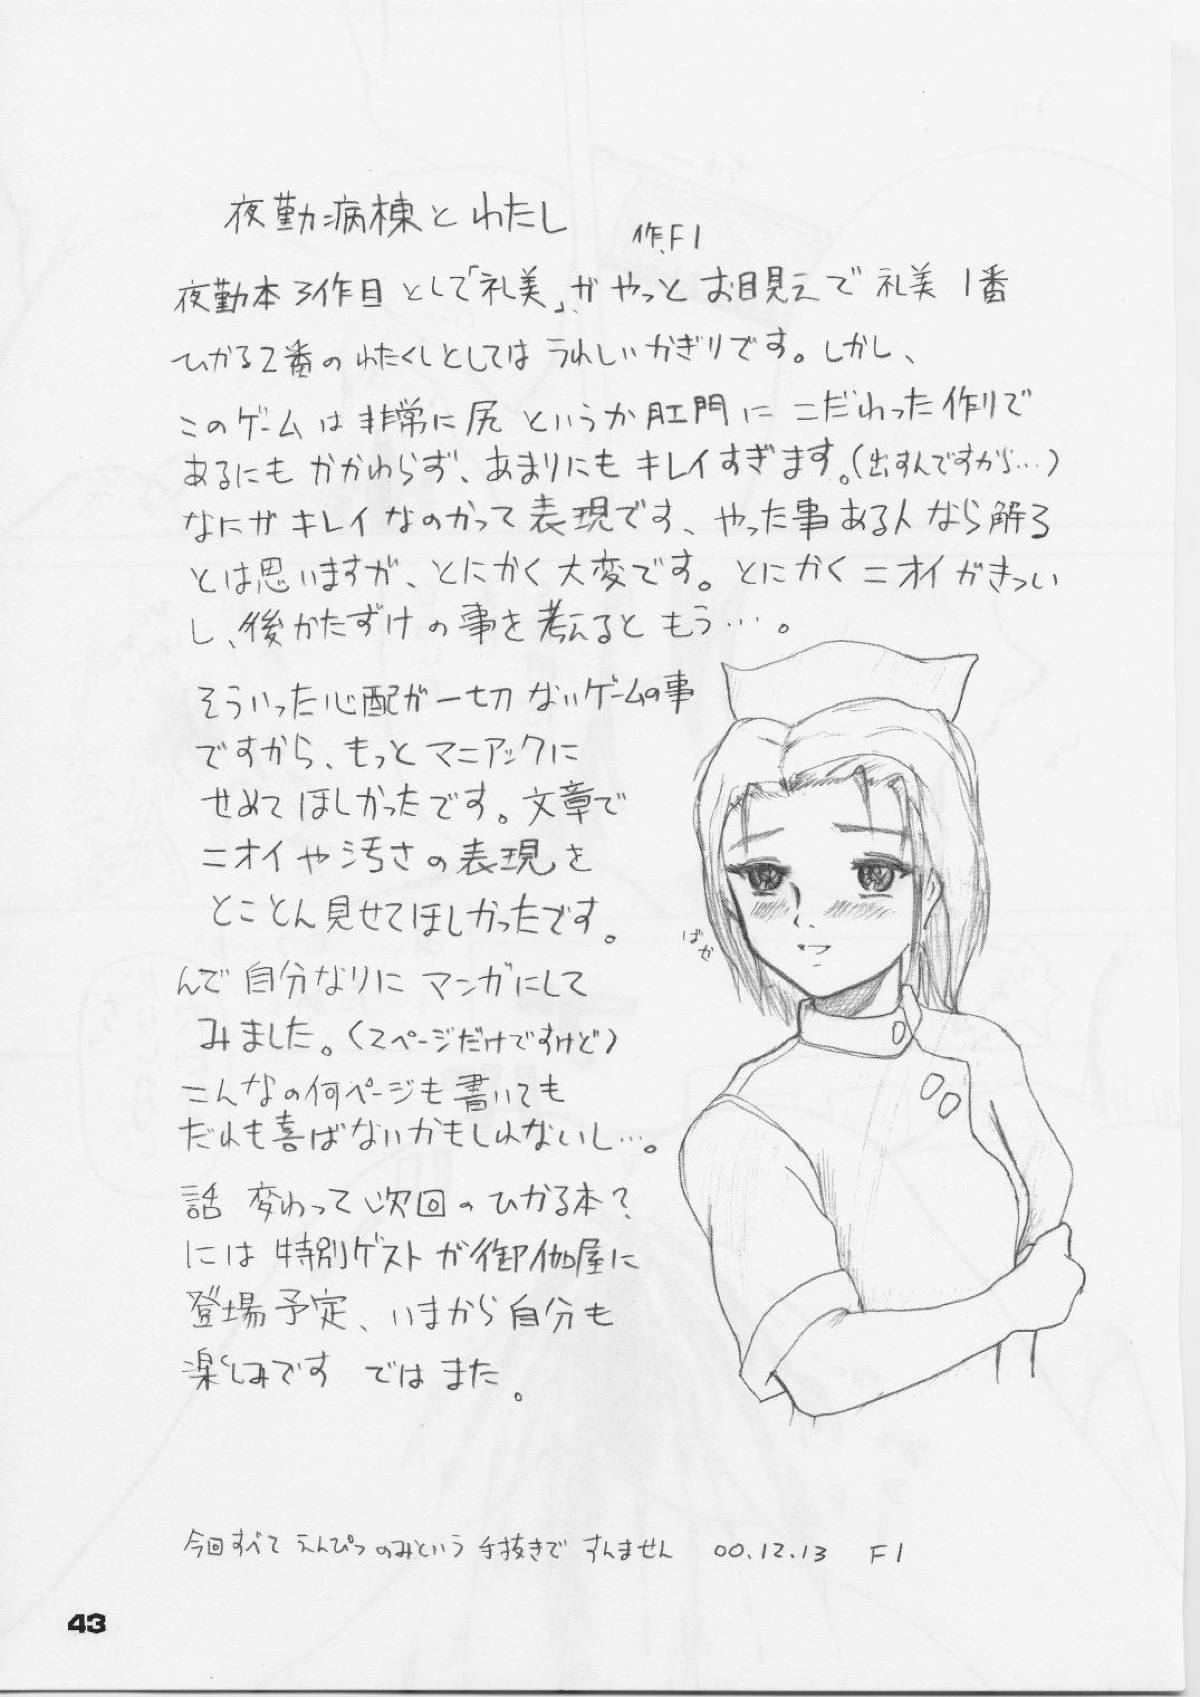 夜勤病棟とわたし
作.F1
夜勤本3作目として「礼美」がやっとお目見えで礼美1番
ひかる2番のわたくしとしてはうれしいかぎりです。しかし、
このゲームは非常に尻というか肛門にこだわった作りで
あるにもかかわらず、あまりにもキレイすぎます。(出すんですから…)
なにがキレイなのかって表現です、やった事ある人なら解る
とは思いますが、とにかく大変です。とにかくニオイがきつい
し、後かたずけの事を考えるともう…。
そういった心配が一切ないゲームの事
ですから、もっとマニアックに
せめてほしかったです。文章で
ニオイや汚さの表現を
とことん見せてほしかったです。
んで自分なりにマンガにして
みました。(2ページだけですけど)
こんなの何ページも書いても
だれも喜ばないかもしれないし…。
話変わって次回のひかる本?
には特別ゲストが御伽屋に
登場予定、いまから自分も
楽しみです ではまた。
ばか
今回すべてえんぴつのみという手抜きですんません 00.12.13 F1
43